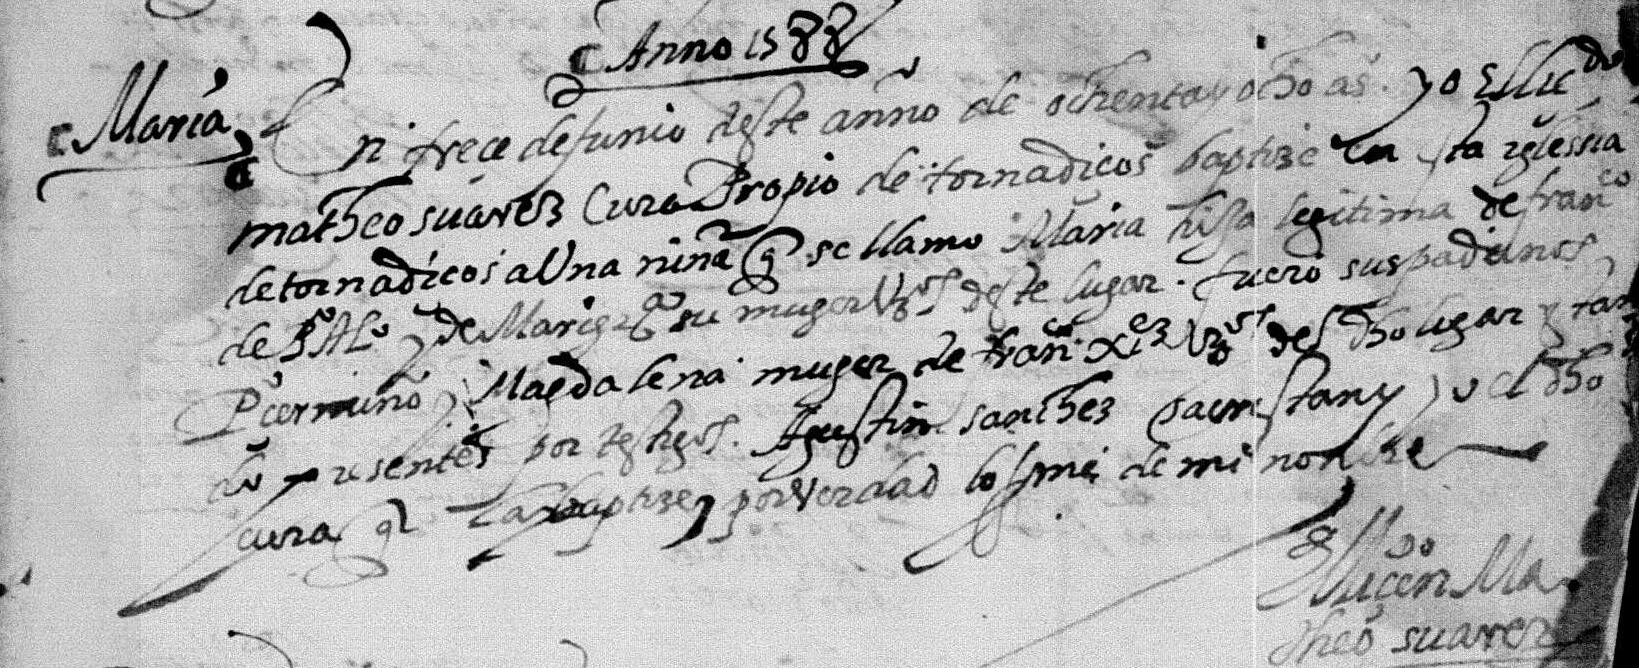 Anno 1588
Maria
En trece de junio deste año de ochenta y ocho as. yo el licdo
matheo suarez Cura Propio de tornadicos baptize en sta yglessia
de tornadicos a Una niña q se llamo Maria hija legitima de franco
de y de Mari su muger vos deste lugar. fuero sus padrinos
Po Magdalena muger de franco xiez vos deste dho lugar y
do presentes por testigos. Agustin sanchez sacristan y yo el dho
cura q la baptize y por verdad lo firme de mi nombre
El licendo Ma
theo suarez